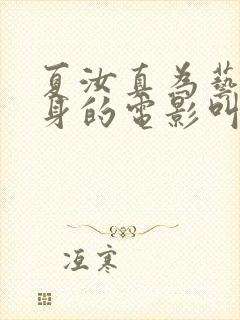 夏汝真為藝
身的電影叫
冱寒